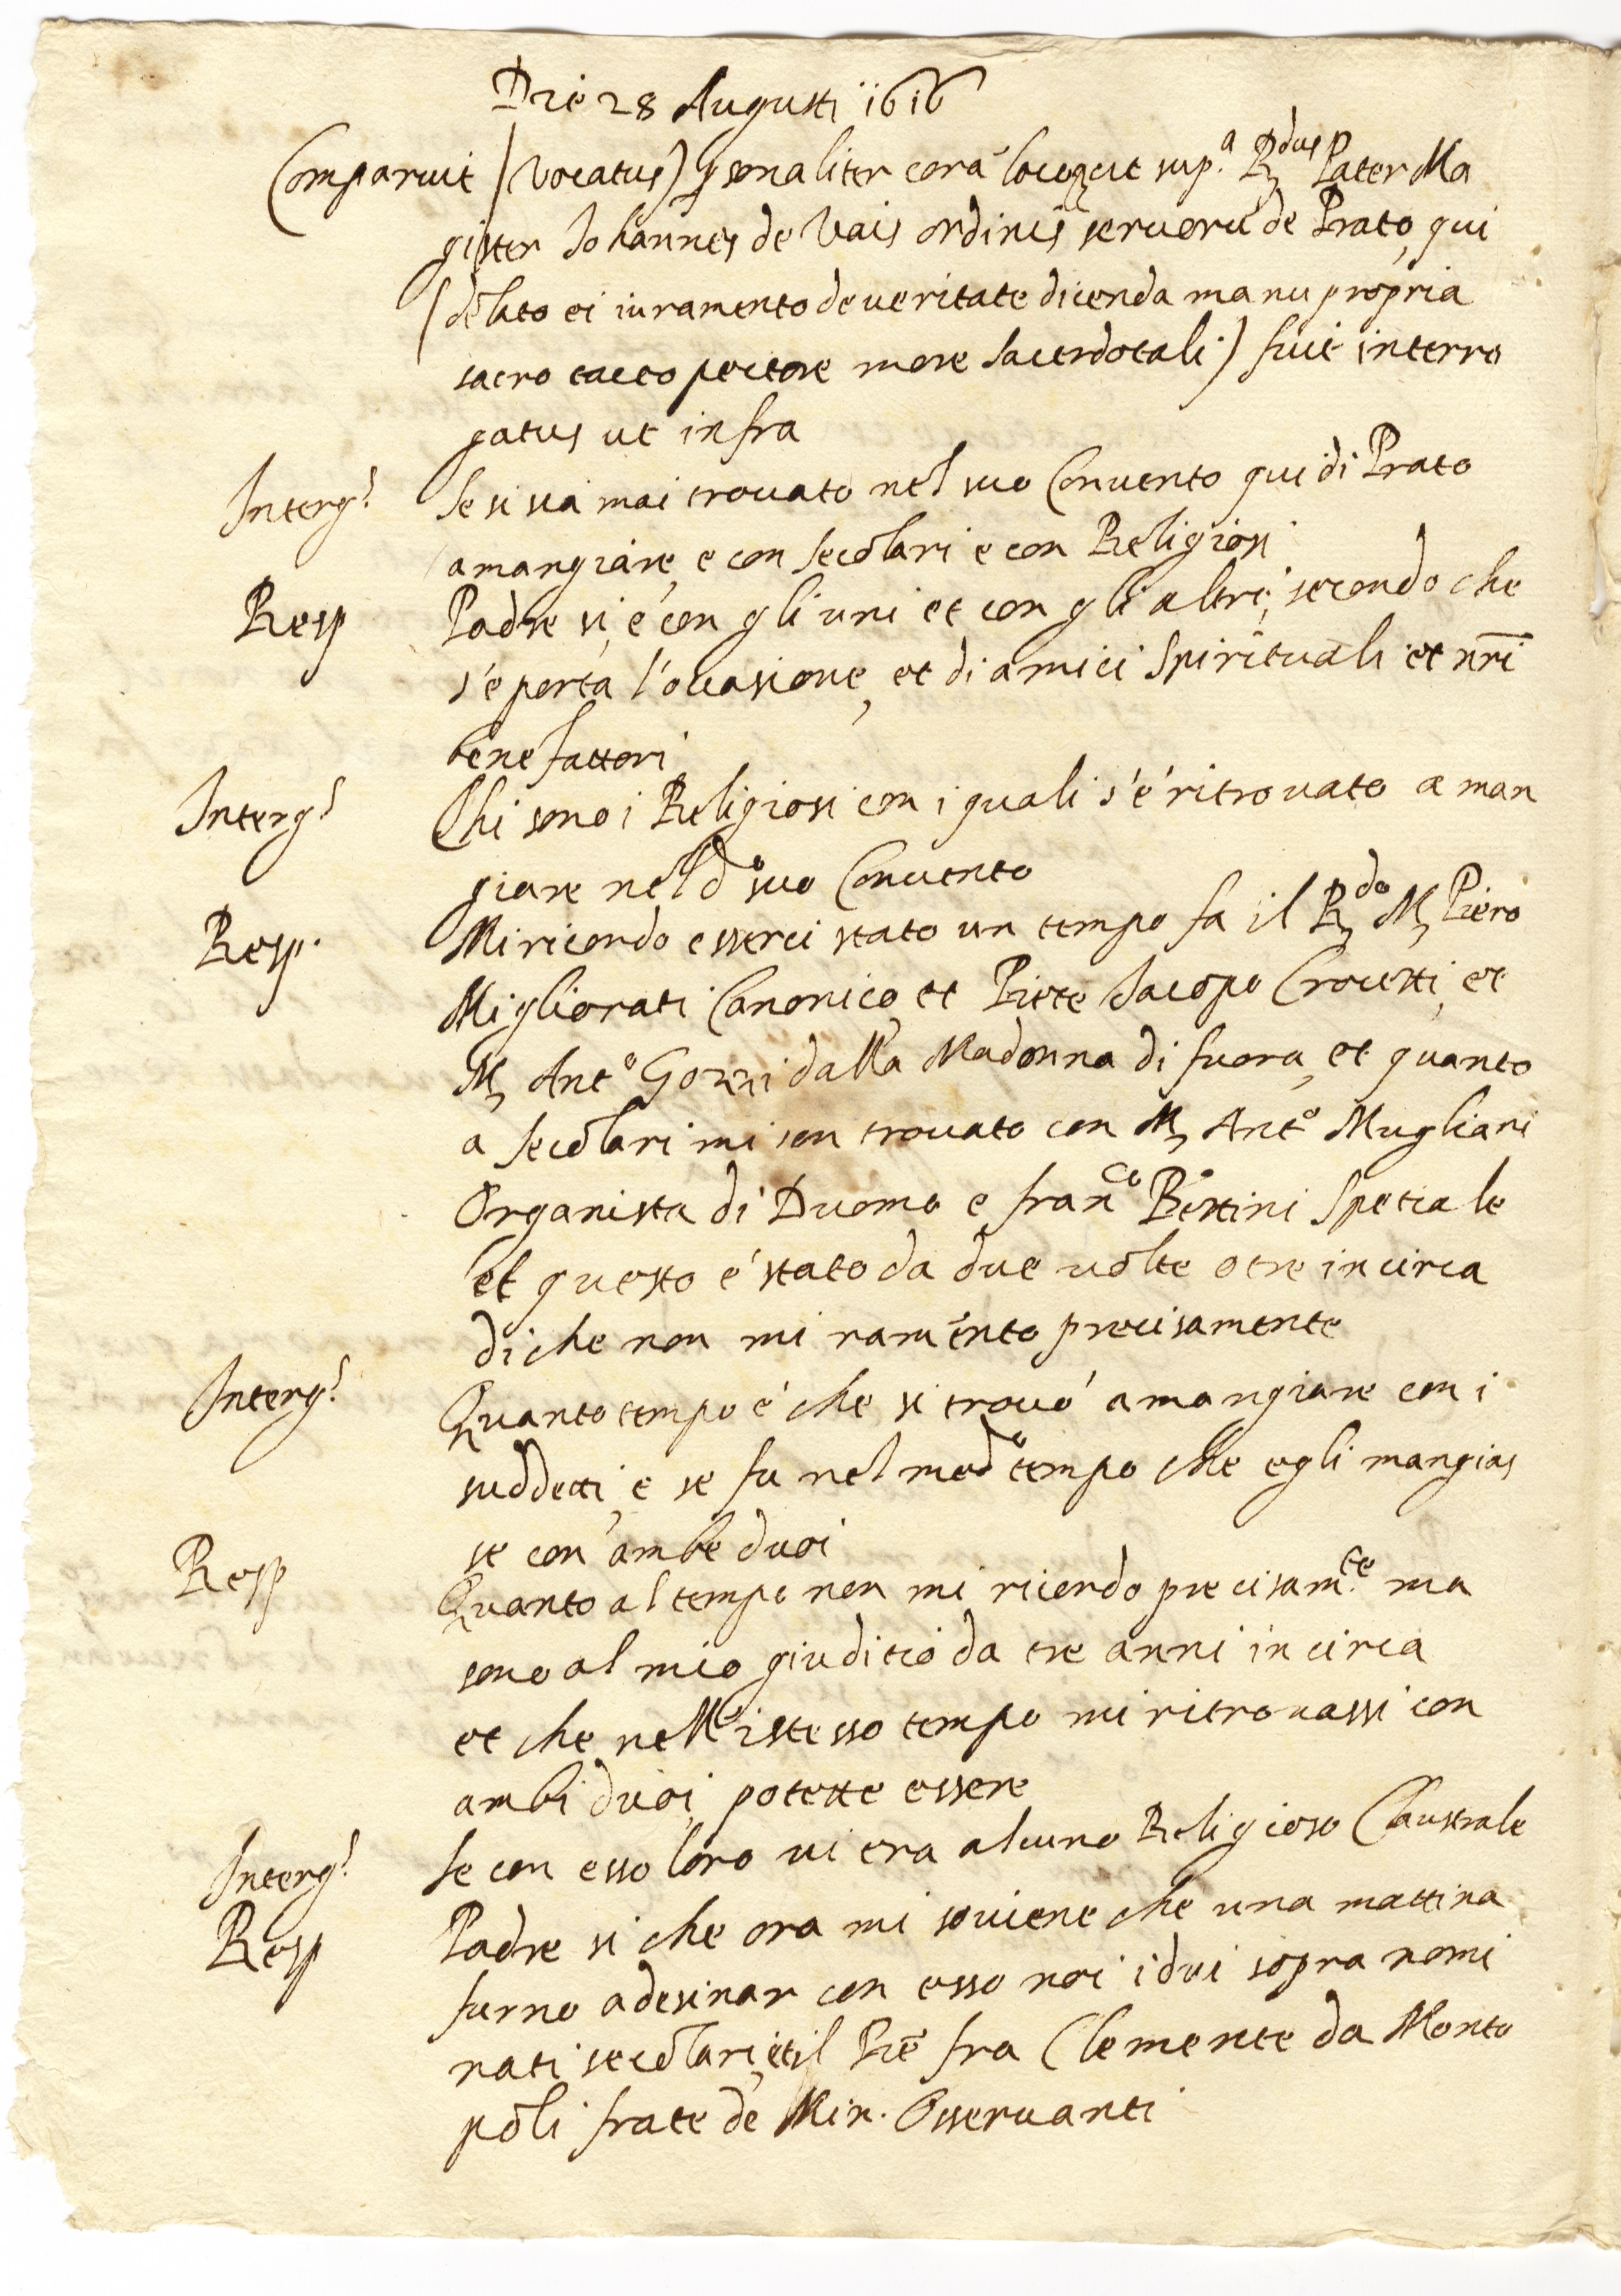 Die 28 Augusti 1616
Comparuit (vocatus) personaliter corã locoq̃ut sup.ª R.dus Pater Ma
gister Johannes de Vais ordinis seruorũ de Prato, qui
(delato ei iuramento de ueritate dicenda manu propria
sacro tacto pectore more sacerdotali) fuit interro
gatus ut infra
Interg.s Se si sia mai trouato nel suo Conuento qui di Prato
a mangiare, e con secolari e con Religiosi
Resp Padre si, e con gli uni et con gli altri, secondo che
s'e porta l'occasione, et di amici spirituali et nr̃i
benefattori
Interg.s Chi sono i Religiosi con i quali s'é ritrouato a man
giare nel d.o suo Conuento
Resp. Mi ricordo esserci stato un tempo fa il R.do M. Piero
Migliorati Canonico, et Prete Jacopo Crocetti, et
M. Ant.o Gozzi dalla Madonna di fuora, et quanto
a secolari mi son trouato con M. Ant.o Mugliani
Organista di Duomo e fran.co Bettini spetiale
et questo e' stato da due uolte o tre in circa
di che non mi ramento precisamente
Interg.s Quanto tempo é che si trouó a mangiare con i
suddetti, e se fu nel med.o tempo che egli mangias
se con ambe duoi
Resp Quanto al tempo non mi ricordo precisam.te ma
sono al mio giuditio da tre anni in circa
et che nell'istesso tempo mi ritrouassi con
ambi duoi, potette essere
Interg.s Se con esso loro ui era alcuno Religioso Claustrale
Resp Padre si che ora mi souiene che una mattina
furno a desinar con esso noi i dui sopra nomi
nati secolari, et il Prẽ fra Clemente da Monto
poli frate de Min. Osseruanti